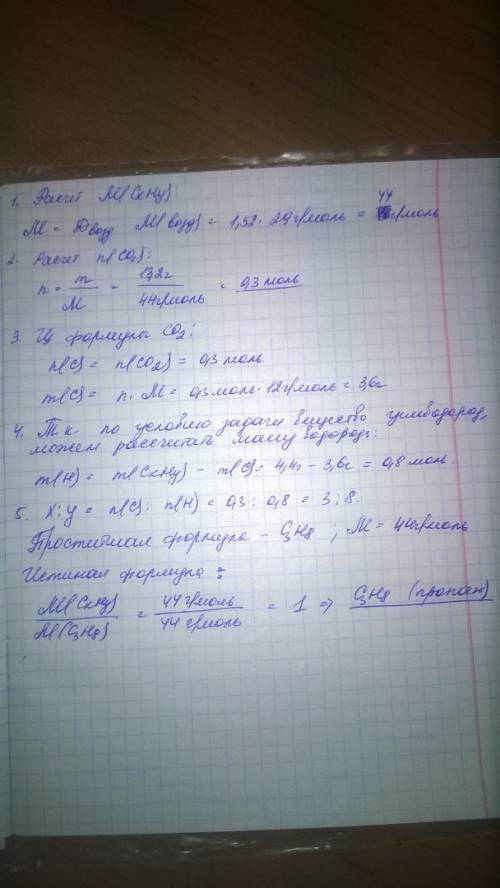 1. Расчет M(CxHy):
M = Dвозд · M(возд) = 1,52 · 29 г/моль = 44 г/моль
2. Расчет n(CO2):
n = m/M = 13,2г/44г/моль = 0,3 моль
3. Из формулы CO2:
n(C) = n(CO2) = 0,3 моль.
m(C) = n · M = 0,3 моль · 12 г/моль = 3,6г
4. Т.к. по условию задачи вещество углеводород,
можем рассчитать массу водорода:
m(H) = m(CxHy) - m(C) = 4,4г - 3,6г = 0,8 моль.
5. X : y = n(C) : n(H) = 0,3 : 0,8 = 3 : 8.
Простейшая формула - C3H8 ; M = 44г/моль
Истиная формула :
M(CxHy)/M(C3H8) = 44 г/моль/44 г/моль = 1 ⇒ C3H8 (пропан)